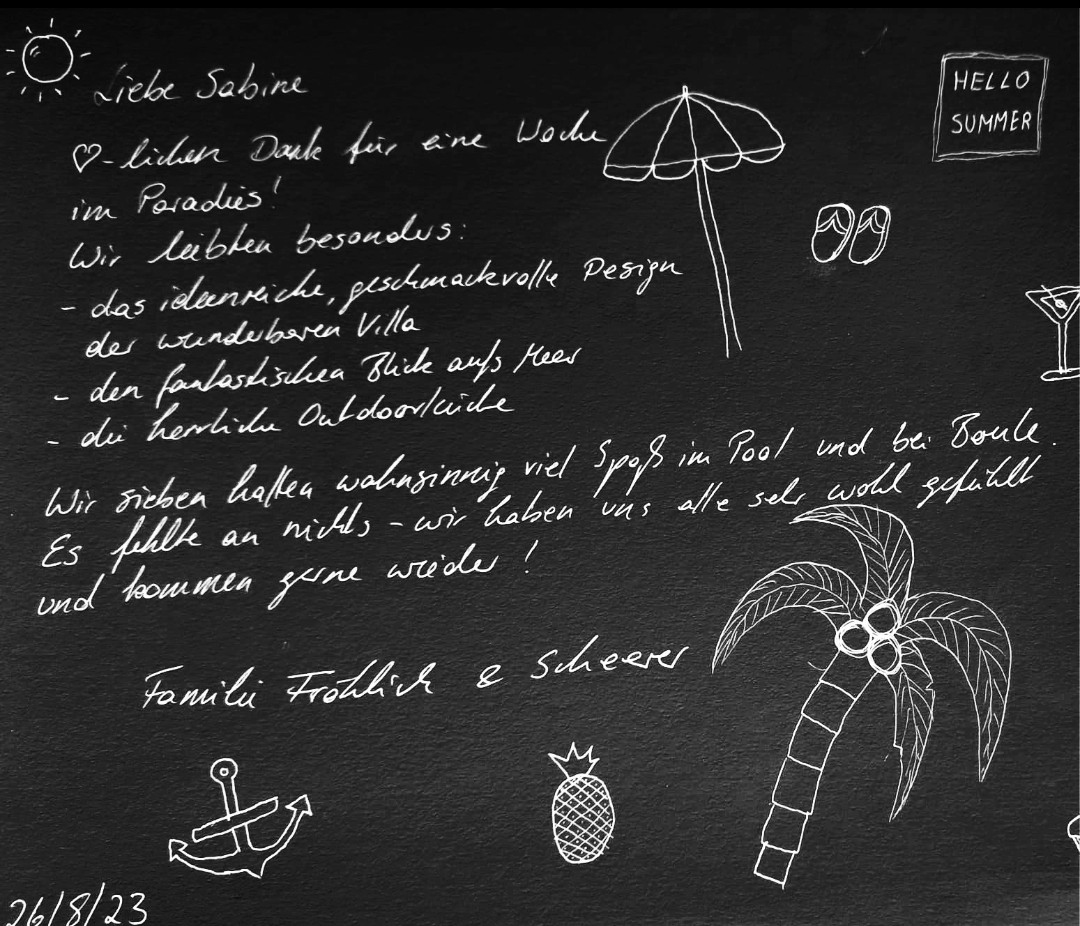 Liebe Sabine
HELLO
SUMMER
♡-lichen Dank für eine Woche
im Paradies!
Wir liebten besonders:
- das ideenreiche, geschmackvolle Design
der wunderbaren Villa
- den fantastischen Blick aufs Meer
- die herrliche Outdoorküche
Wir sieben hatten wahnsinnig viel Spaß im Pool und bei Boule.
Es fehlte an nichts - wir haben uns alle sehr wohl gefühlt
und kommen gerne wieder!
Familie Fröhlich & Scheerer
26/8/23